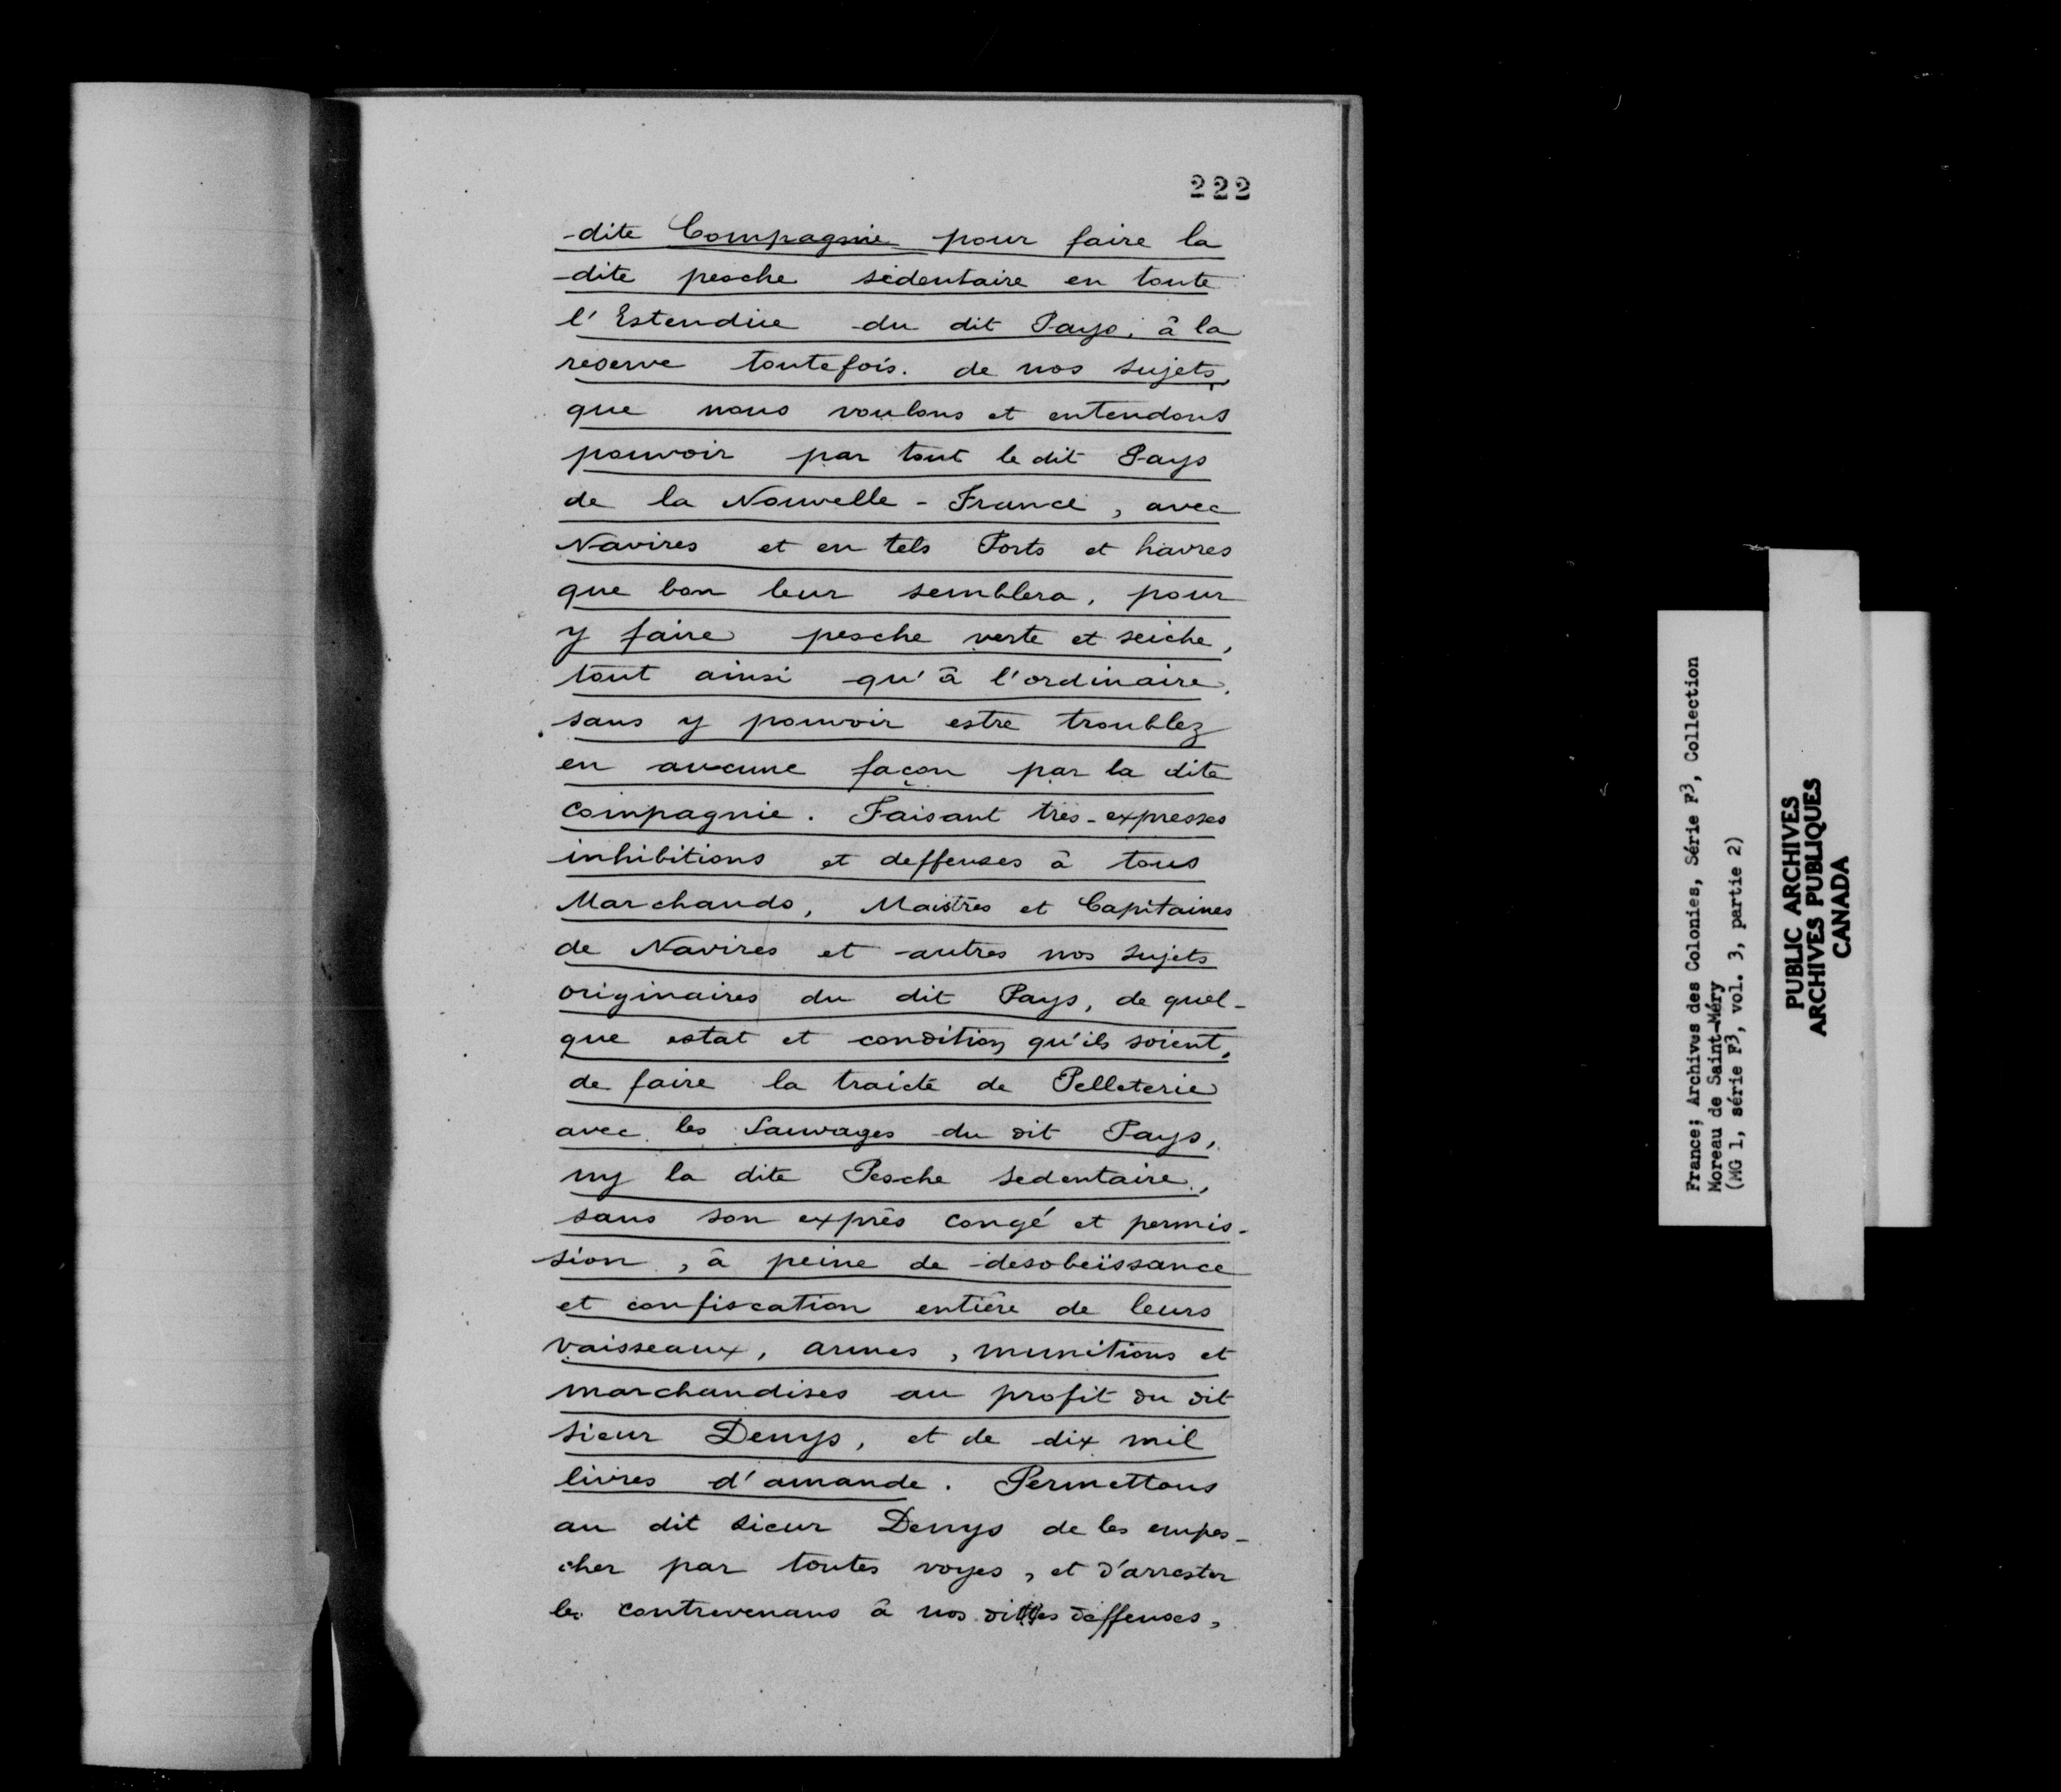 222
dite Compagnie pour faire la
dite pesche sédentaire en toute
l'Estendüe du dit Pays, à la
reserve toutefois. de nos sujets,
que nous voulons et entendons
pouvoir par tout le dit Pays
de la Nouvelle-France, avec
Navires et en tels Ports et havres
que bon leur semblera, pour
y faire pesche verte et seiche,
tout ainsi qu'à l'ordinaire,
sans y pouvoir estre troublez
en aucune façon par la dite
compagnie. Faisant très-expresses
inhibitions et deffenses à tous
Marchands, Maistres et Capitaines
de Navires et autres nos sujets
originaires du dit Pays, de quel-
que estat et condition qu'ils soient,
de faire la traicte de Pelleterie
avec les Sauvages du dit Pays,
ny la dite Pesche sedentaire,
sans son exprès congé et permis-
sion, à peine de desobeïssance
et confiscation entière de leurs
vaisseaux, armes, munitions et
marchandises au profit du dit
sieur Denys, et de dix mil
livres d'amande. Permettons
au dit sieur Denys de les empes-
cher par toutes voyes, et d'arrester
les contrevenans à nos dittes deffenses,
France; Archives des Colonies, Série F3, Collection
Moreau de Saint-Méry
(MG 1, série F3, vol. 3, partie 2)
PUBLIC ARCHIVES
ARCHIVES PUBLIQUES
CANADA